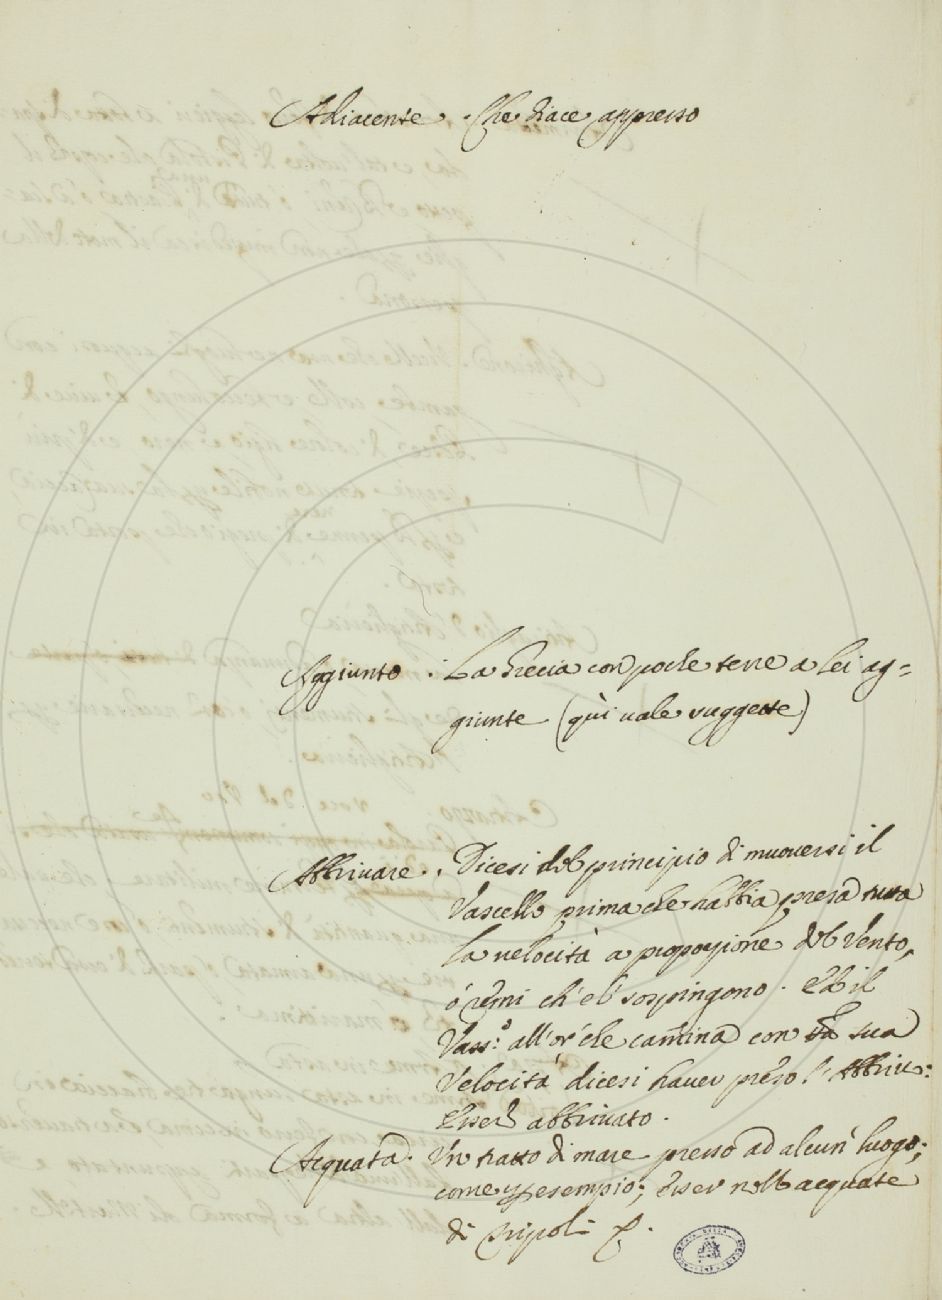 Adiacente. Che giace appresso
Aggiunto. La Grecia con poche terre a lei ag=
giunte (quì vale suggette)
Abbrivare. Dicesi del principio di muoversi il
Vascello prima che habbia presa tutta
la velocità a proporzione del Vento,
ó remi ch'el sospingono. Ed il
Vass:º all'or che camina con sua
velocità dicesi haver preso l'Abbriv:
Esser abbrivato.
Acquata. Un tratto di mare presso ad alcun luogo;
come p esempio; Esser nell acquate
di Tripoli